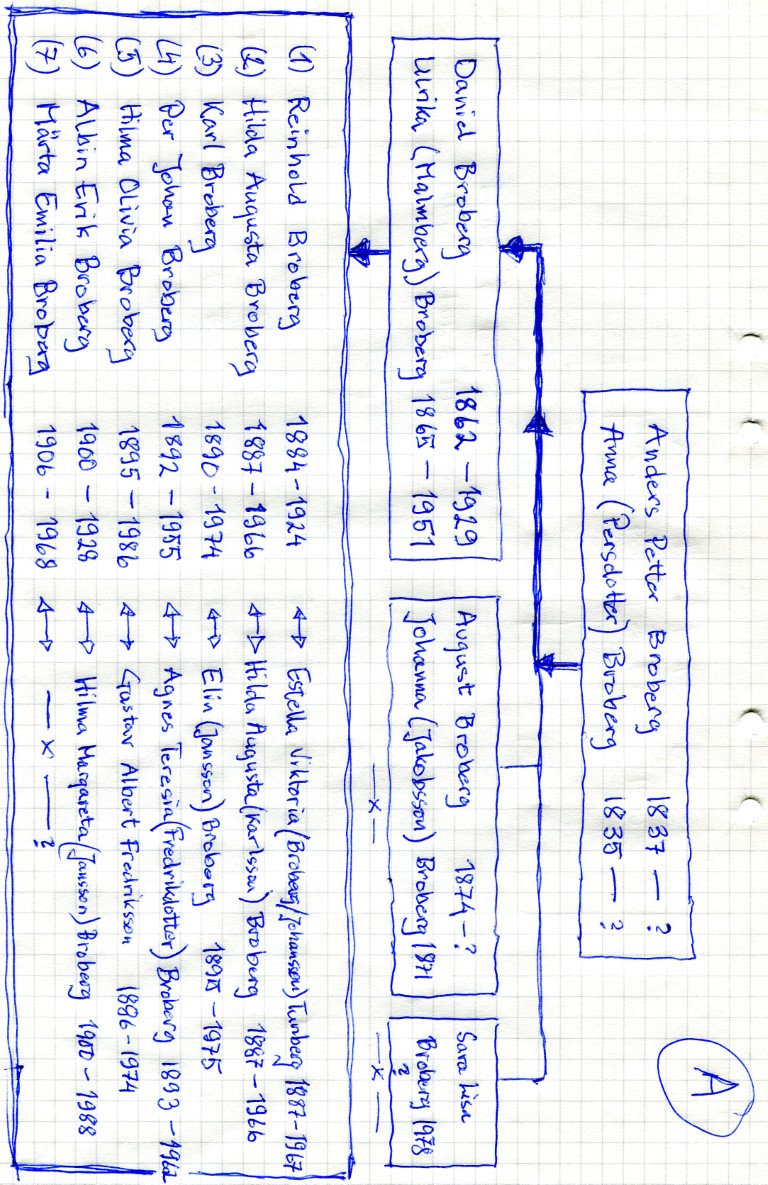 A
Anders Petter Broberg 1837 — ?
Anna (Persdotter) Broberg 1835 — ?
Daniel Broberg 1862 — 1929
Ulrika (Malmberg) Broberg 1865 — 1951
August Broberg 1874 — ?
Johanna (Jakobsson) Broberg 1871
— x —
Sara Lisa
Broberg 1978
?
— x —
(1) Reinhold Broberg 1884-1924 ↔ Estella Viktoria (Broberg/Johansson) Tunberg 1887-1967
(2) Hilda Augusta Broberg 1887-1966 ↔ Hilda Augusta (Karlsson) Broberg 1887-1966
(3) Karl Broberg 1890-1974 ↔ Elin (Jansson) Broberg 1895-1975
(4) Per Johan Broberg 1892-1955 ↔ Agnes Teresia (Fredrikdotter) Broberg 1893-1962
(5) Hilma Olivia Broberg 1895-1986 ↔ Gustav Albert Fredriksson 1886-1974
(6) Albin Erik Broberg 1900-1928 ↔ Hilma Margareta (Jansson) Broberg 1900-1988
(7) Märta Emilia Broberg 1906-1968 ↔ — x — ?